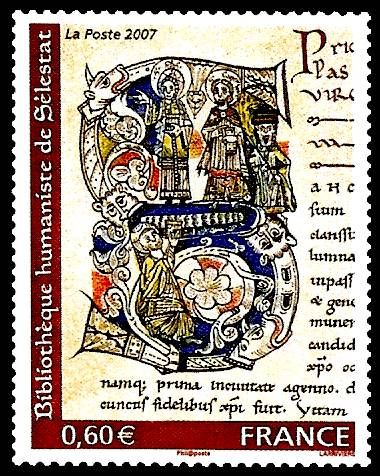 La Poste 2007
Bibliothèque humaniste de Sélestat
Pric
las
VIRG
A HC
feum
clarissi
lumina
inpass
& gene
muner
candid
xpo oc
namq; prima incuitate agenno. d
cunctis fidelibus xpi fuit. Vitam
0,60€
FRANCE
Phil@poste
LARRIVIÈRE